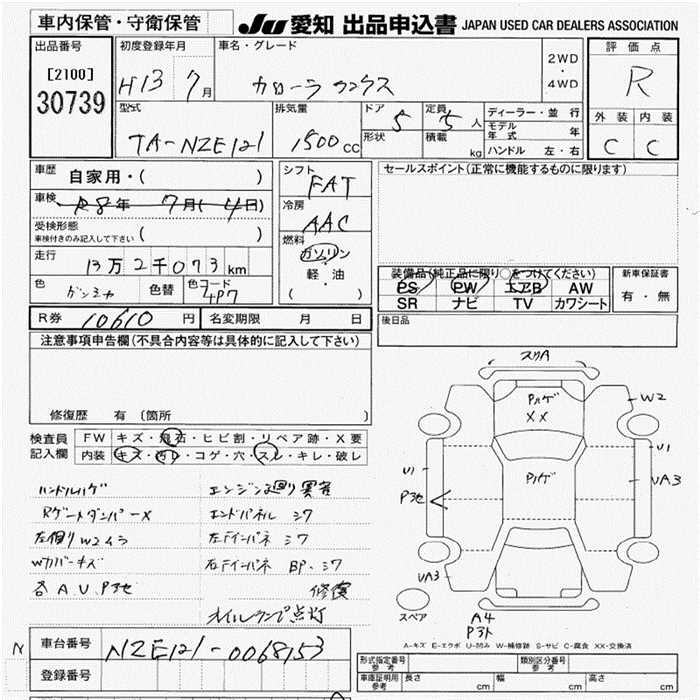 車内保管・守衛保管
JU 愛知 出品申込書 JAPAN USED CAR DEALERS ASSOCIATION
出品番号
[2100]
30739
初度登録年月
H13 7月
車名・グレード
カローラ ランクス
2WD
・
4WD
評価点
R
外装 内装
C C
型式
TA-NZE121
排気量
1500cc
ドア
5
形状
定員
5人
積載
kg
ディーラー・並行
モデル年式 年
ハンドル 左・右
車歴
自家用・( )
車検
R8年 7月(4日)
受検形態
車検付きのみ記入して下さい ( )
走行
13万2千073km
色
ガンミカ
色替
色コード
4P7
シフト
FAT
冷房
AAC
燃料
ガソリン
軽・油
( )
セールスポイント(正常に機能するものに限ります)
装備品(純正品に限り○をつけてください)
PS PW エアB AW
SR ナビ TV カワシート
新車保証書
有・無
R券 10610円
名変期限 月 日
後日品
注意事項申告欄(不具合内容等は具体的に記入して下さい)
修復歴 有(箇所 )
検査員記入欄
FW キズ・飛石・ヒビ割・リペア跡・X要
内装 キズ・汚レ・コゲ・穴・スレ・キレ・破レ
ハンドルハゲ
Rゲートダンパー×
左側リW2イラ
Wカバーキズ
各A.U.Pヨゴ
エンジン廻り異音
エンドパネル シワ
左Fインパネ シワ
右Fインパネ BP.シワ
修復
オイルランプ点灯
スリA
Pハゲ
XX
W2
U1
U1
Pハゲ
UA3
UA3
スペア
A4
A-キズ E-エクボ U-凹み W-補修跡 S-サビ C-腐食 XX-交換済
N
車台番号 NZE121-0068153
登録番号
形式指定番号
参考
類別区分番号
参考
車庫証明用
参考
長さ cm
幅 cm
高さ cm